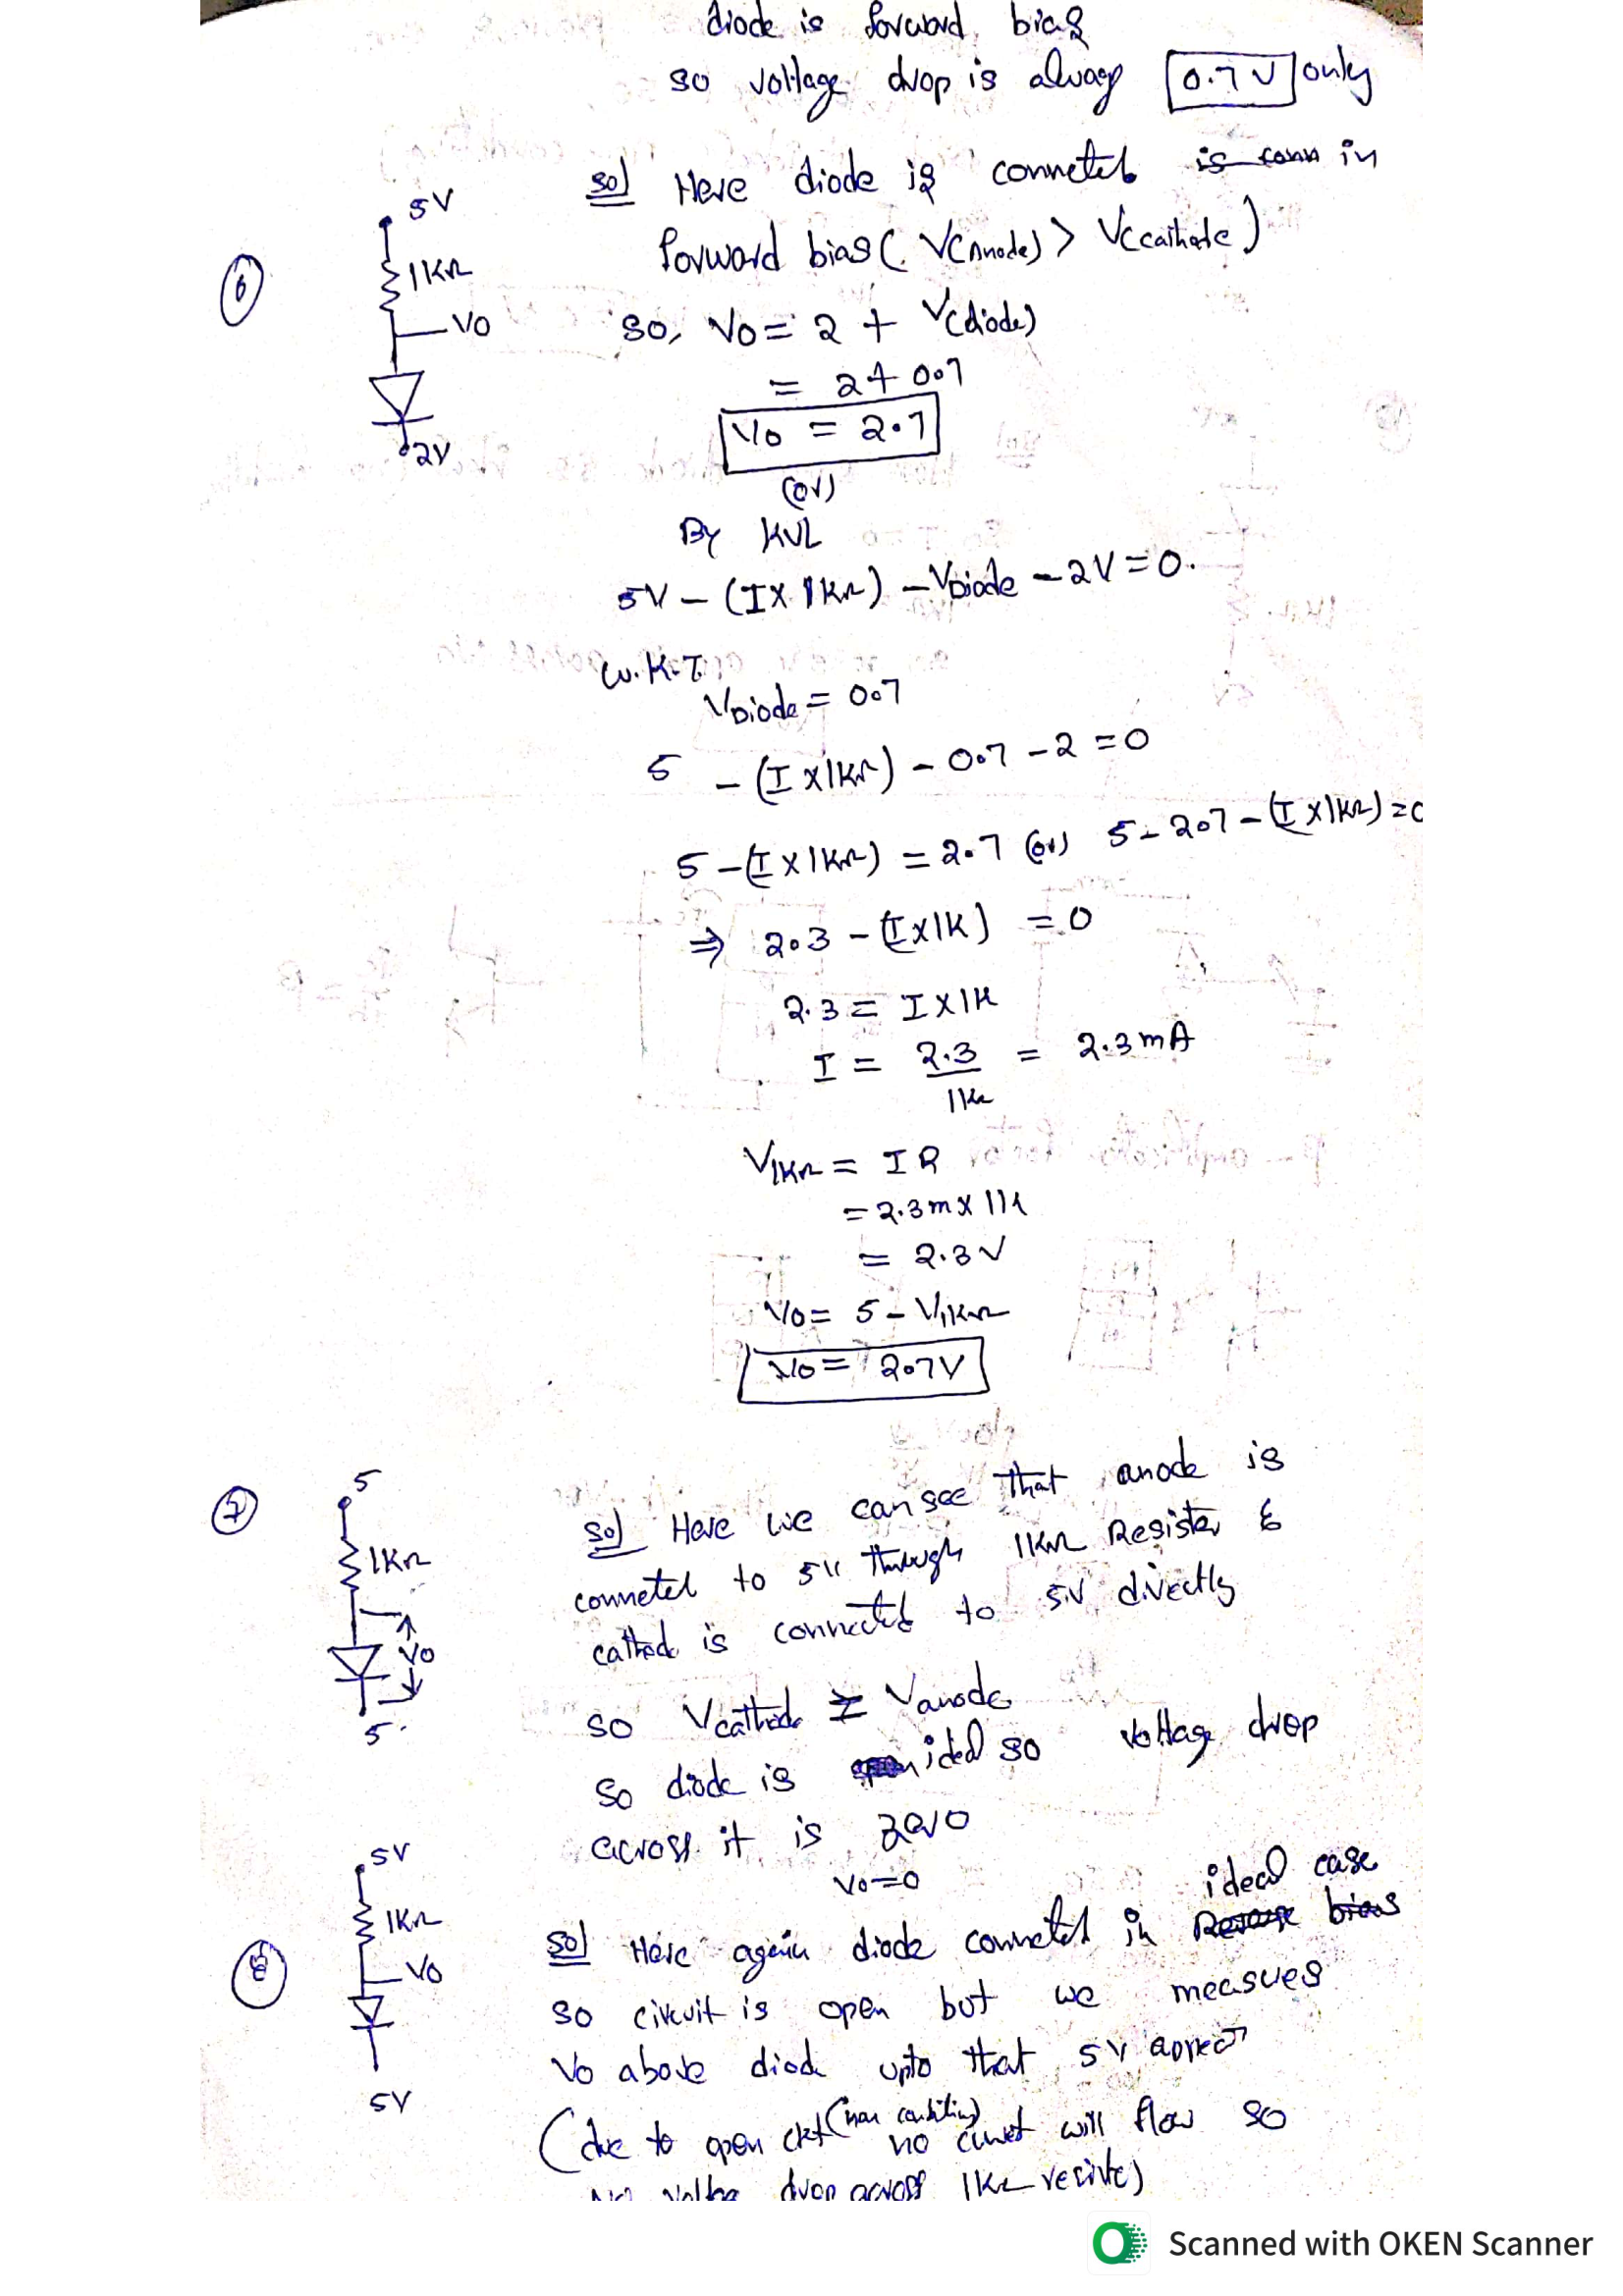 diode is forward bias
so voltage drop is alway 0.7 V only
sol Here diode is connected is conn in
forward bias (V(Anode) > V(cathode)
⑥
5V
1KΩ
Vo
2V
so, Vo = 2 + V(diode)
= 2+0.7
Vo = 2.7
(or)
By KVL
5V - (I x 1KΩ) - VDiode - 2V = 0.
W.K.T.
VDiode = 0.7
5 - (I x 1KΩ) - 0.7 - 2 = 0
5 - (I x 1KΩ) = 2.7 (or) 5 - 2.7 - (I x 1KΩ) = 0
⇒ 2.3 - (I x 1K) = 0
2.3 = I x 1K
I = 2.3 / 1KΩ = 2.3 mA
V1KΩ = I R
= 2.3 m x 1K
= 2.3 V
Vo = 5 - V1KΩ
Vo = 2.7V
⑦
5
1KΩ
Vo
5
sol Here we can see that anode is
connected to 5V through 1KΩ Resistor &
cathod is connected to 5V directly
so Vcathode Vanode
so diode is ideal so voltage drop
across it is zero
Vo=0
⑧
5V
1KΩ
Vo
5V
ideal case
sol Here again diode connected in Reverse bias
so circuit is open but we measues
Vo above diode upto that 5V
(due to open ckt no curret will flow so
no voltage drop across 1KΩ)
Scanned with OKEN Scanner